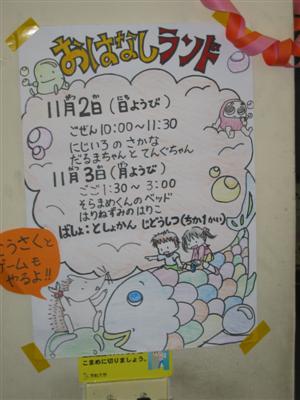 おはなしランド
11月2日(日ようび)
ごぜん10:00〜11:30
にじいろ の さかな
だるまちゃんと てんぐちゃん
11月3日(月ようび)
ごご1:30〜3:00
そらまめくんのベッド
はりねずみのはりこ
ばしょ:としょかん じどうしつ(ちか1かい)
こうさくと
ゲームも
やるよ!!
こまめに切りましょう。